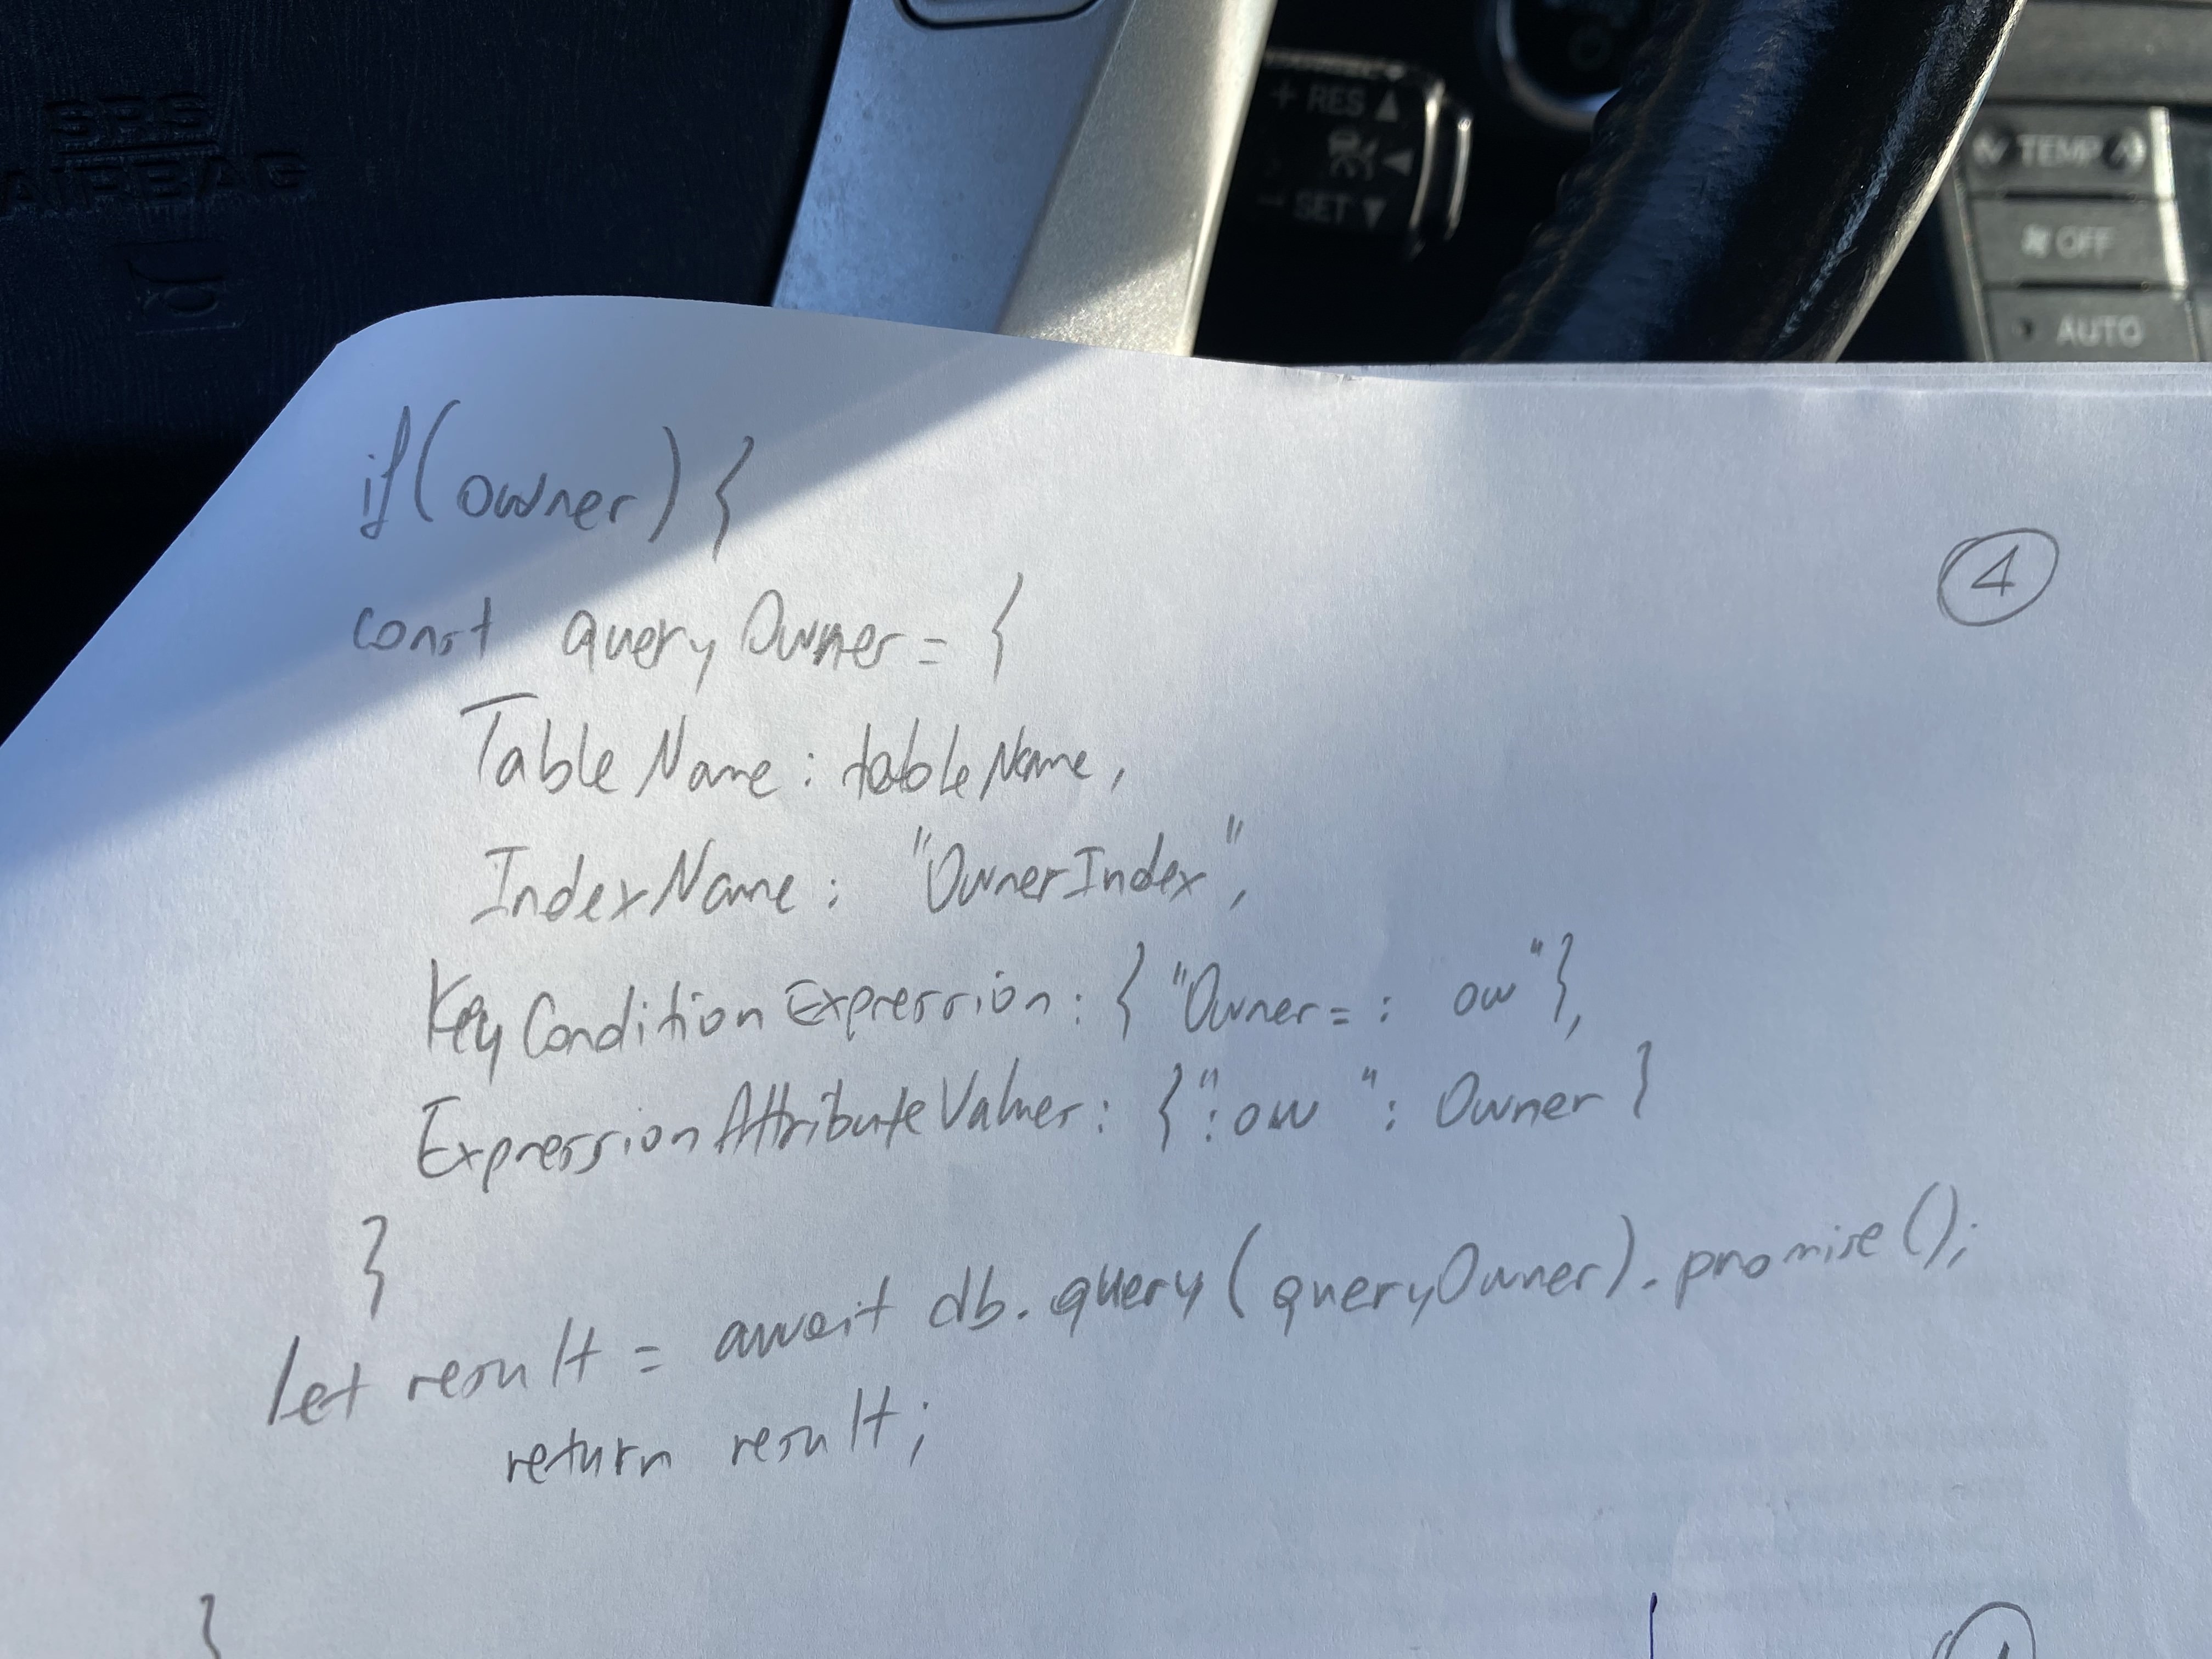 SRS
AIRBAG
+ RES ▲
- SET ▼
TEMP
OFF
AUTO
if(owner){
4
const queryOwner = {
TableName: tableName,
IndexName: "OwnerIndex",
KeyConditionExpression: { "Owner = : ow"},
ExpressionAttributeValues: {":ow ": Owner }
}
let result = await db.query(queryOwner).promise();
return result;
}